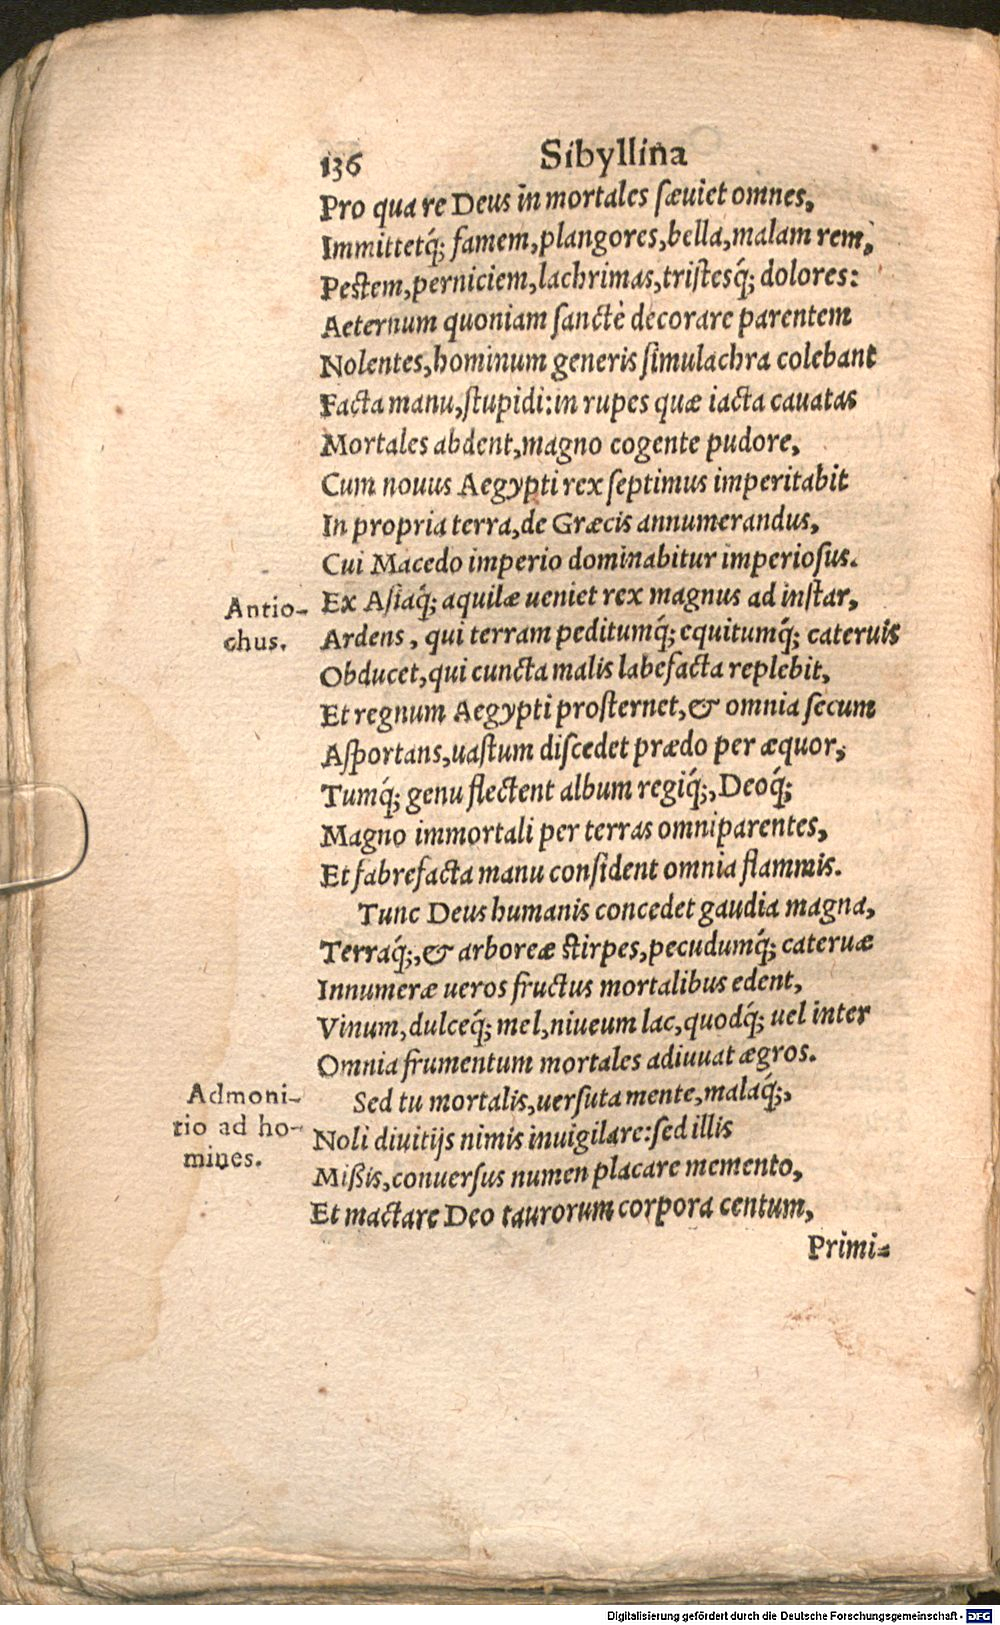 136 Sibyllina
Pro qua re Deus in mortales sæuiet omnes,
Immittetq́; famem, plangores, bella, malam rem,
Pestem, perniciem, lachrimas, tristesq́; dolores:
Aeternum quoniam sanctè decorare parentem
Nolentes, hominum generis simulachra colebant
Facta manu, stupidi: in rupes quæ iacta cauatas
Mortales abdent, magno cogente pudore,
Cum nouus Aegypti rex septimus imperitabit
In propria terra, de Græcis annumerandus,
Cui Macedo imperio dominabitur imperiosus.
Antio-
chus.
Ex Asiaq́; aquilæ ueniet rex magnus ad instar,
Ardens, qui terram peditumq́; equitumq́; cateruis
Obducet, qui cuncta malis labefacta replebit,
Et regnum Aegypti prosternet, & omnia secum
Asportans, uastum discedet prædo per æquor;
Tumq́; genu flectent album regiq́;, Deoq́;
Magno immortali per terras omniparentes,
Et fabrefacta manu consident omnia flammis.
Tunc Deus humanis concedet gaudia magna,
Terraq́;, & arboreæ stirpes, pecudumq́; cateruæ
Innumeræ ueros fructus mortalibus edent,
Vinum, dulceq́; mel, niueum lac, quodq́; uel inter
Omnia frumentum mortales adiuuat ægros.
Admoni-
tio ad ho-
mines.
Sed tu mortalis, uersuta mente, malaq́;,
Noli diuitijs nimis inuigilare: sed illis
Mißis, conuersus numen placare memento,
Et mactare Deo taurorum corpora centum,
Primi-
Digitalisierung gefördert durch die Deutsche Forschungsgemeinschaft - DFG